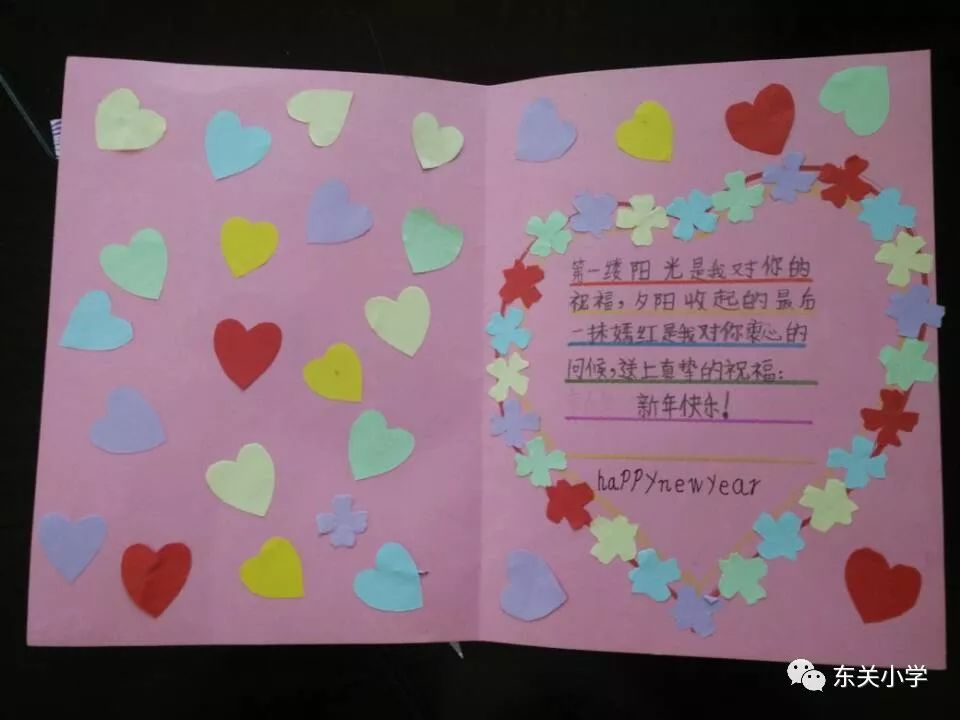 第一缕阳光是我对你的
祝福,夕阳收起的最后
一抹嫣红是我对你衷心的
问候,送上真挚的祝福:
新年快乐!
haPPYnewYear
东关小学